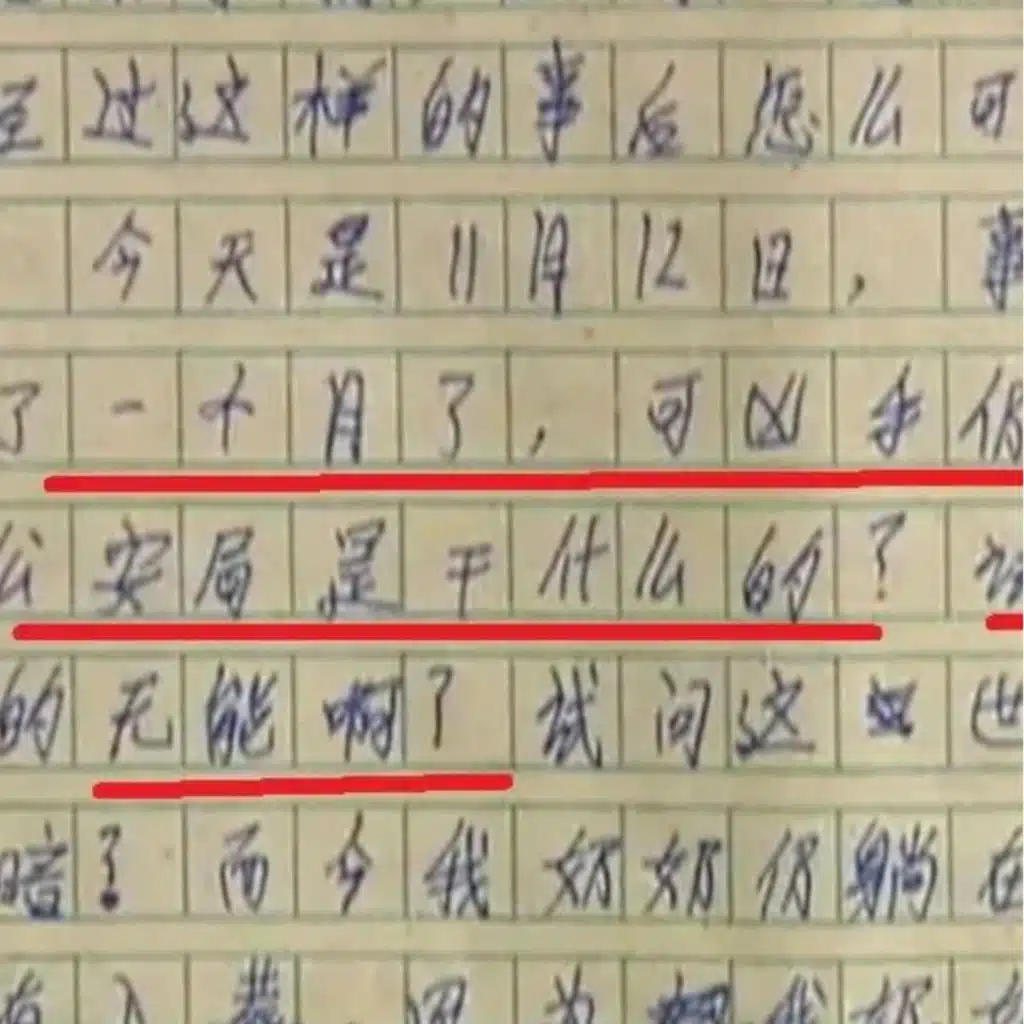 过这样的事后您么可
今天是11月12日,事
了一个月了,可凶手仍
公安局是干什么的?
的无能啊?试问这世
暗?而今我奶奶仍躺在
有入葬,因为我奶